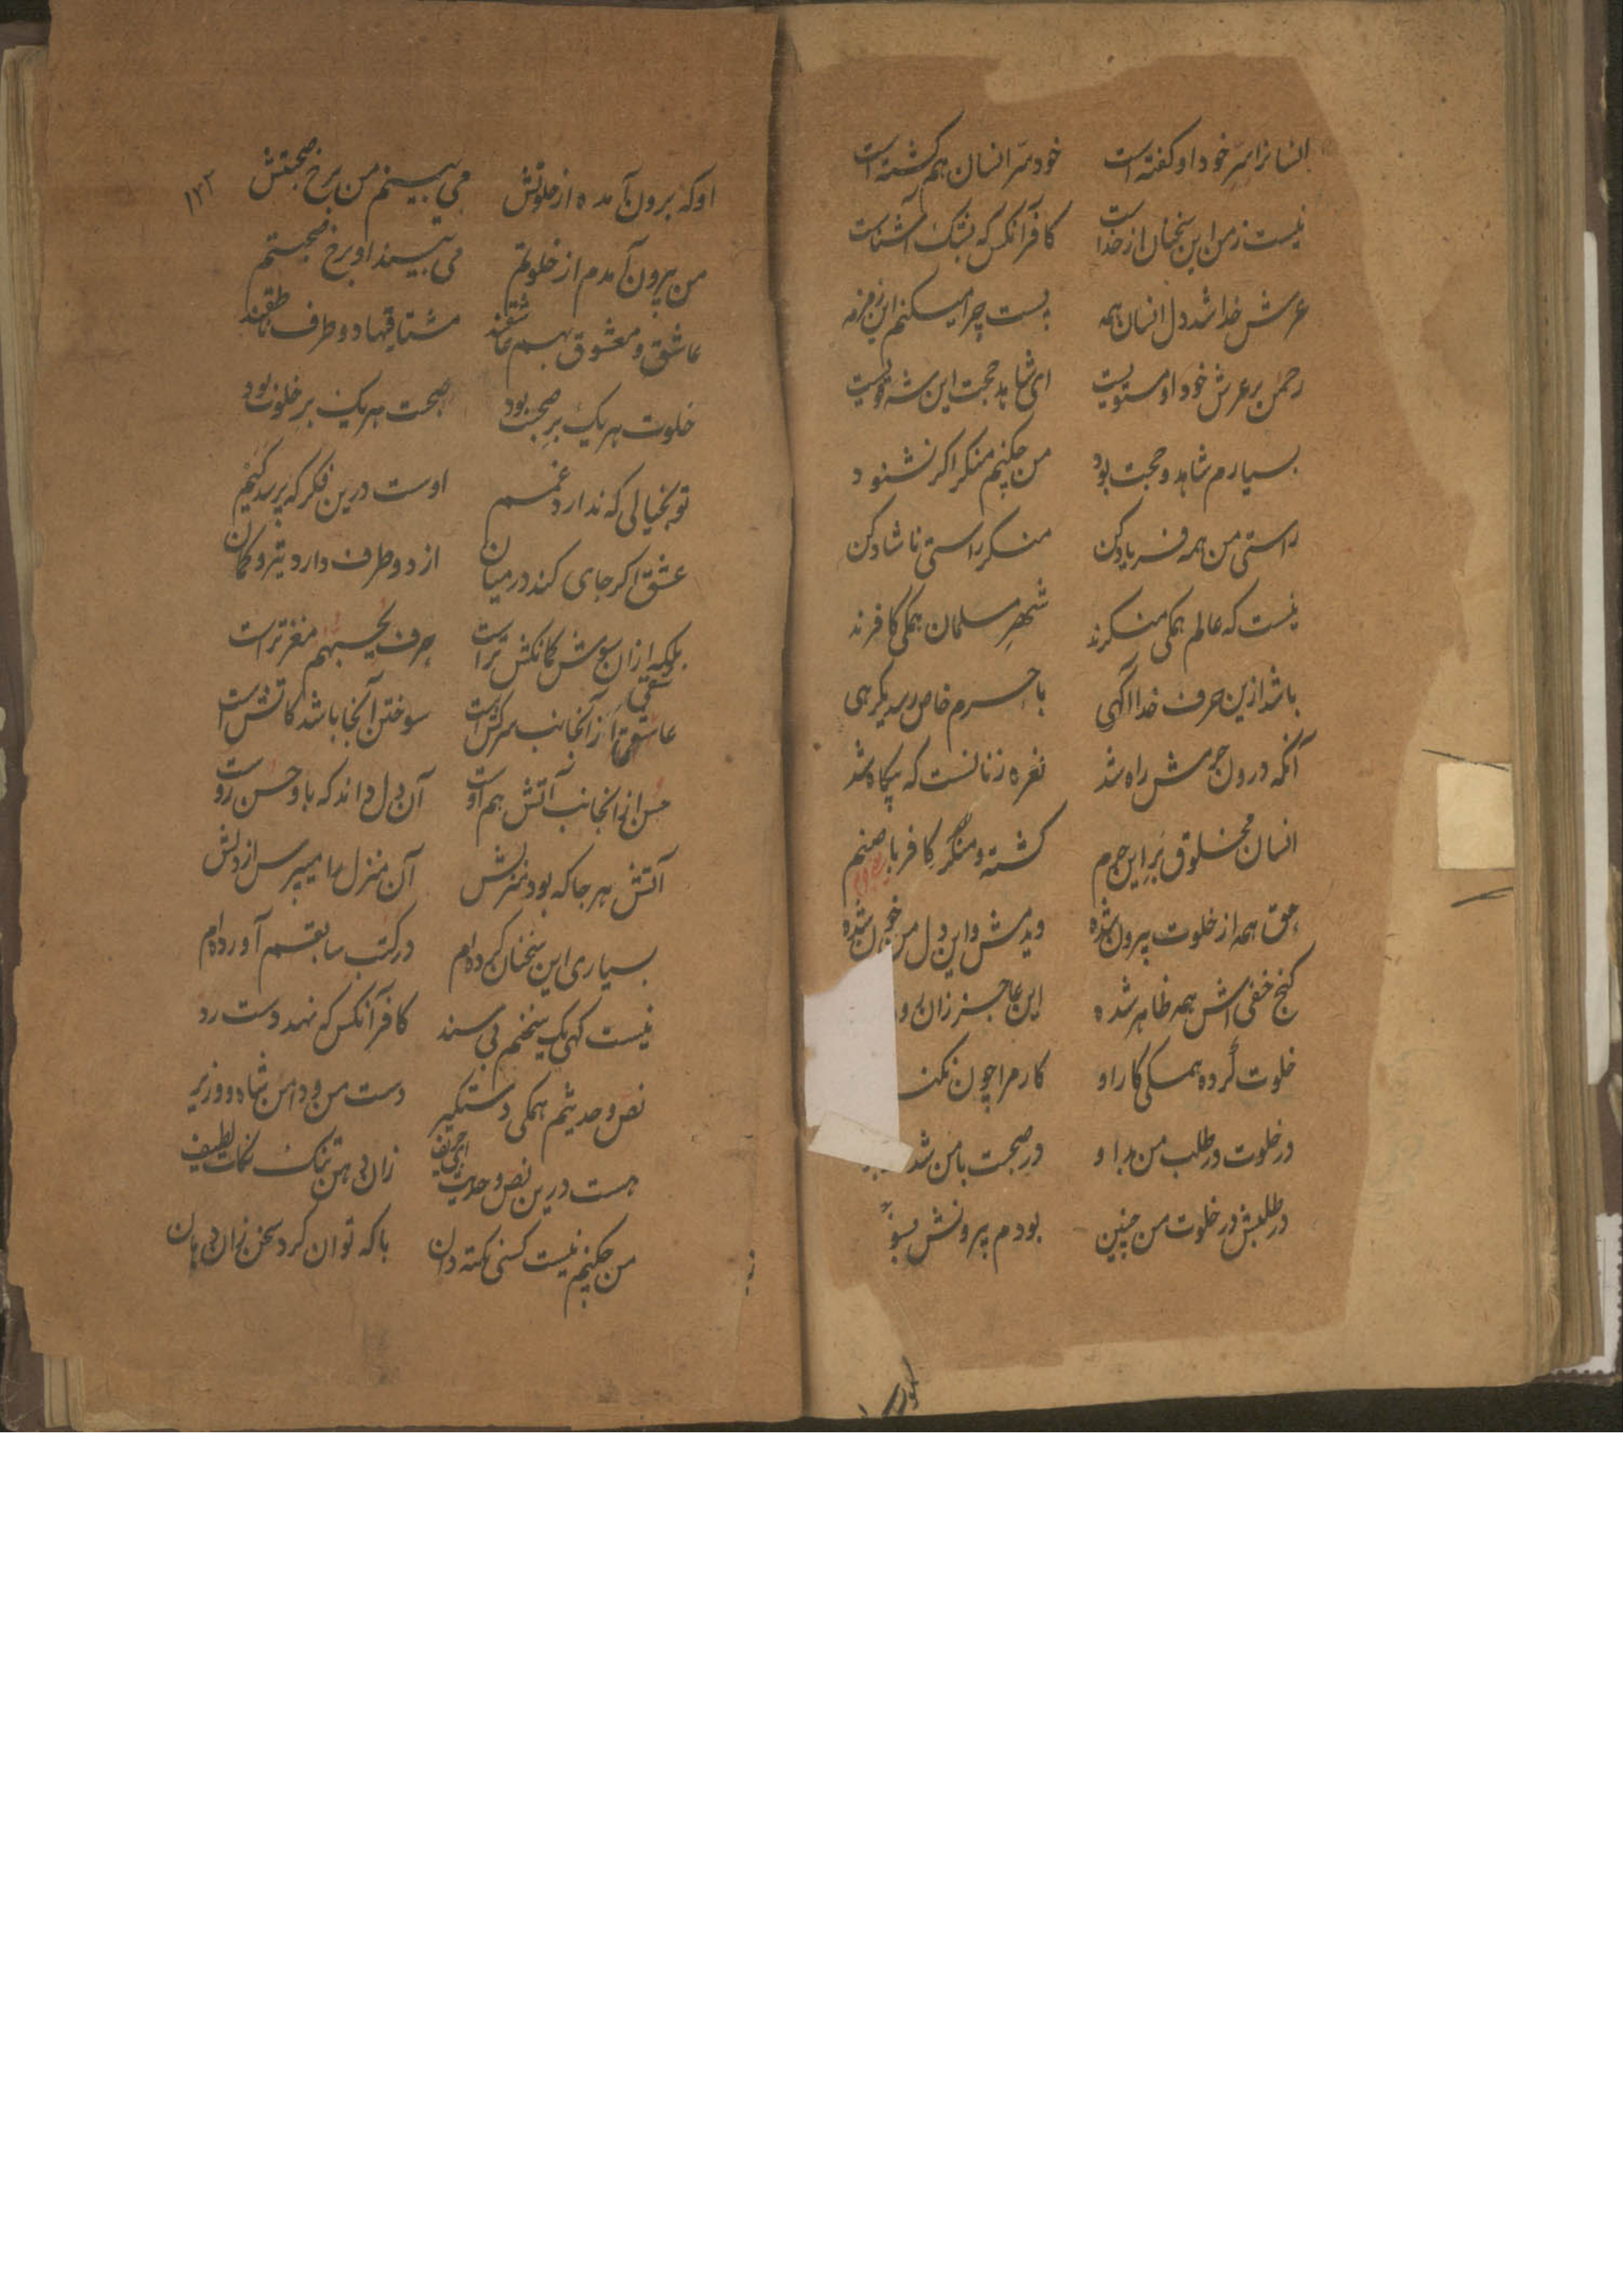 انسانرا سرّ خود او کفته است خود سرّ انسان هم کشته است
نیست ز من این سخنان از خداست کافر آنکس که بشک آشناست
عرش خدا شد دل انسان همه پست چرا میکنم این زمزمه
رحمن بر عرش خود او مستویست ای شاهد حجت این شه قویست
بسیارم شاهد و حجت بود من چکنم منکر اکر نشنود
راستی من همه فریاد کن منکر راستی ناشاد کن
نیست که عالم همکی منکرند شهر مسلمان همکی کافرند
باشد ازین حرف خدا آگهی با حرم خاص رسد یکرهی
آنکه درون حرمش راه شد نعره زنانست که بیکاه شد
انسان مخلوق بر این حرم کشته و منکر کافر با صنم
حق همه از خلوت بیرون شده دیدمش و این دل من خون شده
کنج خفی اش همه ظاهر شده این عاجز زان
خلوت کرده همکی کار او کار مرا چون نکند
در خلوت در طلب من بد او در صحبت با من شد
در طلبش در خلوت من چنین بودم بیرونش
او که برون آمده از خلوتش می بینم من برخ صحبتش
۱۲۲
من بیرون آمدم از خلوتم می بیند او برخ صحبتم
عاشق و معشوق بهم عاشقند مشتاقیها دو طرف ناطقند
خلوت هر یک بر صحبت بود صحبت هر یک بر خلوت بود
تو بخیالی که ندارد غمم اوست درین فکر که پرسد کیم
عشق اکر جای کند درمیان از دو طرف دارد تیر و کمان
بلکه از ان سوش کمانکش تر است حرف بچسپهم مغزتر است
عاشقی از آنجانب سرکش است سوختن آنجا باشد کاتش است
حسن از آنجانب آتش هم اوست آن دل داند که با و حسن روست
آتش هر جا که بود منزلش آن منزل را میپرس از دلش
بسیاری این سخنان کرده ام در کتب سابقم آورده ام
نیست کهی یک سخنم بی سند کافر آنکس که نهد دست رد
نص و حدیثم همکی دستکیر دست من و دامن شاه و وزیر
هست درین نص و حدیث ای حریف زان دهن تنک نکات لطیف
من چکنم نیست کسی نکته دان با که توان کرد سخن زان دهان